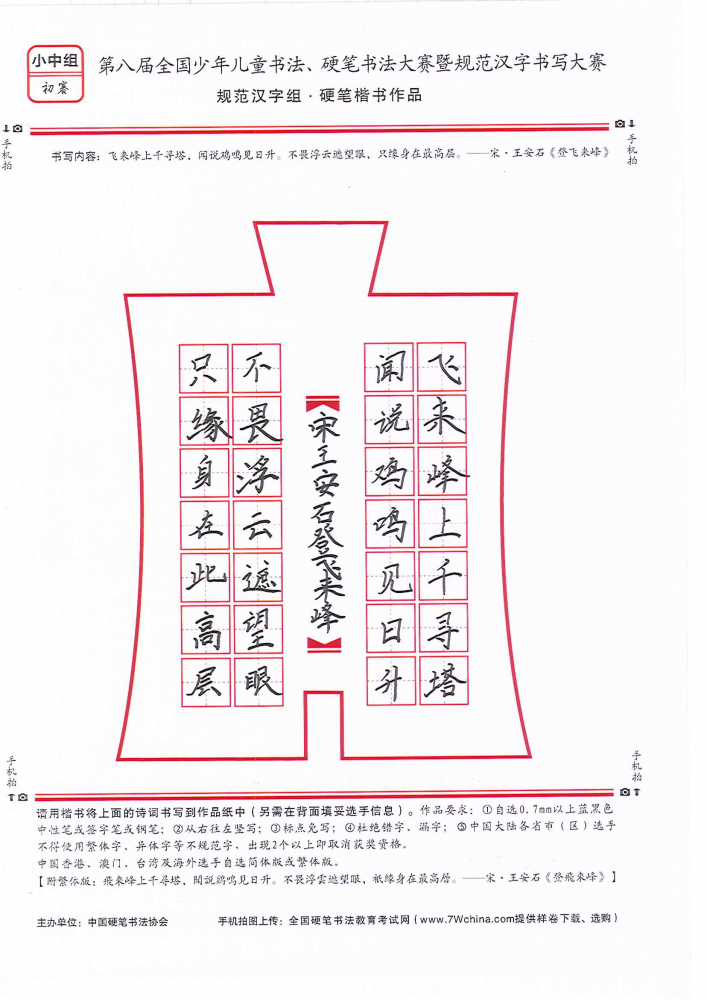 小中组
初赛
第八届全国少年儿童书法、硬笔书法大赛暨规范汉字书写大赛
规范汉字组·硬笔楷书作品
手机拍
手机拍
书写内容：飞来峰上千寻塔，闻说鸡鸣见日升。不畏浮云遮望眼，只缘身在最高层。——宋·王安石《登飞来峰》
飞来峰上千寻塔
闻说鸡鸣见日升
宋王安石登飞来峰
不畏浮云遮望眼
只缘身在此高层
手机拍
手机拍
请用楷书将上面的诗词书写到作品纸中（另需在背面填妥选手信息）。作品要求：①自选0.7mm以上蓝黑色
中性笔或签字笔或钢笔；②从右往左竖写；③标点免写；④杜绝错字、漏字；⑤中国大陆各省市（区）选手
不得使用繁体字、异体字等不规范字，出现2个以上即取消获奖资格。
中国香港、澳门、台湾及海外选手自选简体版或繁体版。
【附繁体版：飛來峰上千尋塔，聞說鷄鳴見日升。不畏浮雲遮望眼，祇緣身在最高層。——宋·王安石《登飛來峰》】
主办单位：中国硬笔书法协会
手机拍图上传：全国硬笔书法教育考试网（www.7Wchina.com提供样卷下载、选购）